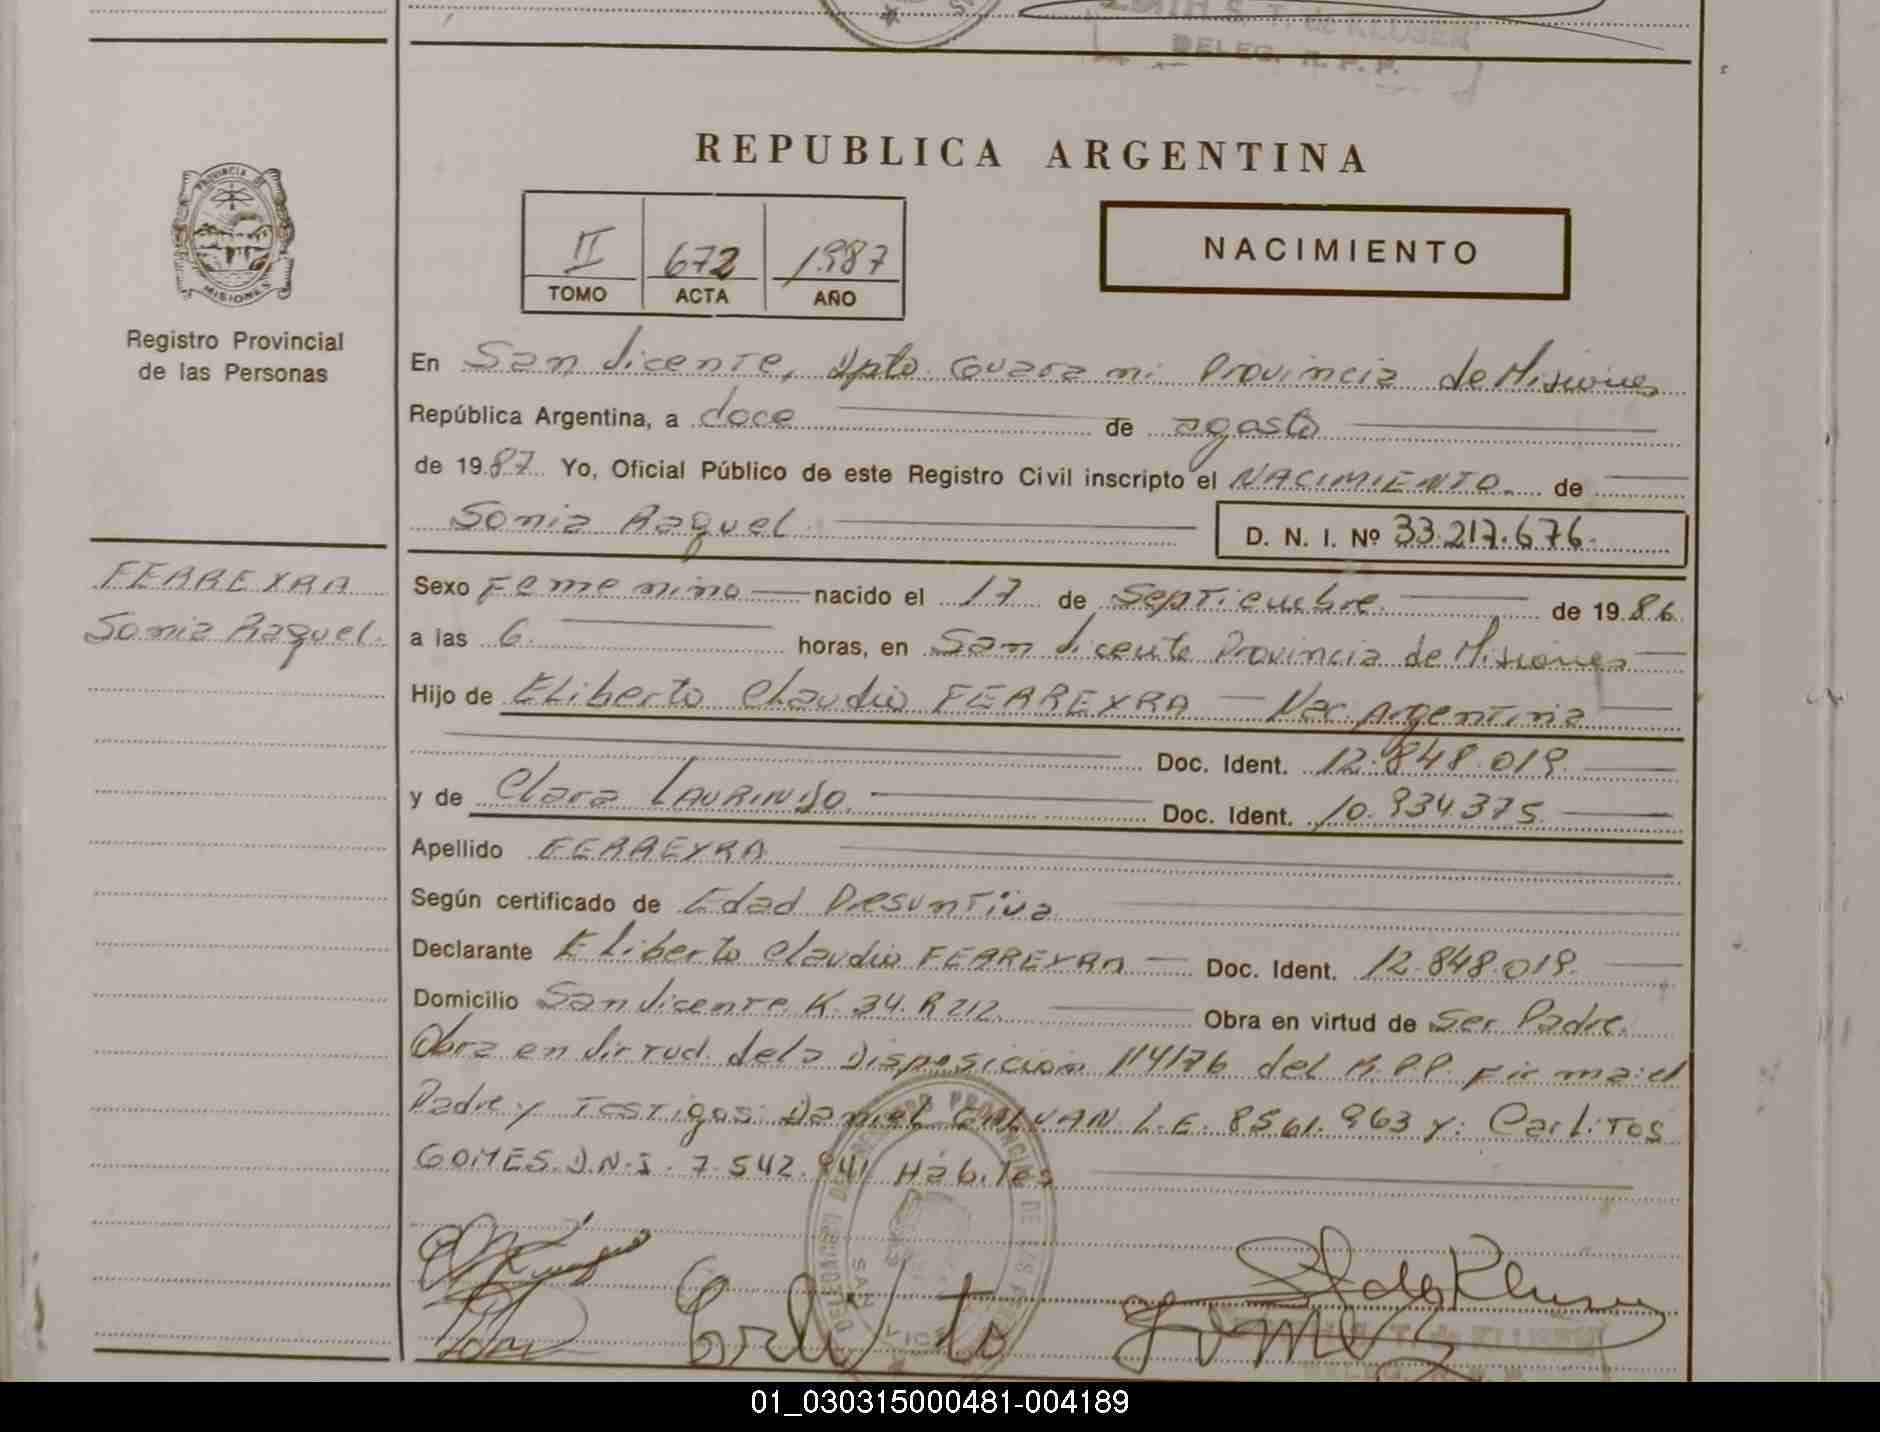 DELEG. R. P. P.
REPUBLICA ARGENTINA
PROVINCIA DE
MISIONES
II 672 1987
TOMO ACTA AÑO
NACIMIENTO
Registro Provincial
de las Personas
En San Vicente, Dpto. Guarani Provincia de Misiones
República Argentina, a doce de agosto
de 1987 Yo, Oficial Público de este Registro Civil inscripto el NACIMIENTO de
Sonia Raquel D. N. I. Nº 33.217.676.
FERREYRA
Sonia Raquel.
Sexo Femenino nacido el 17 de Septiembre de 1986
a las 6. horas, en San Vicente Provincia de Misiones
Hijo de Eliberto Claudio FERREYRA Nac. Argentina
Doc. Ident. 12.848.019.
y de Clara LAURINDO. Doc. Ident. 10.934.375.
Apellido FERREYRA
Según certificado de Edad Presuntiva
Declarante Eliberto Claudio FERREYRA Doc. Ident. 12.848.019.
Domicilio San Vicente K. 34. R 212. Obra en virtud de Ser Padre.
Obra en Virtud de la Disposición 114/76 del R.P.P. Firma: el
Padre y Testigos: Daniel GALVAN L.E. 8561.963 y: Carlitos
GOMES. D.N.I. 7.542.941 Hábiles
Carlito
Gomez
01_030315000481-004189